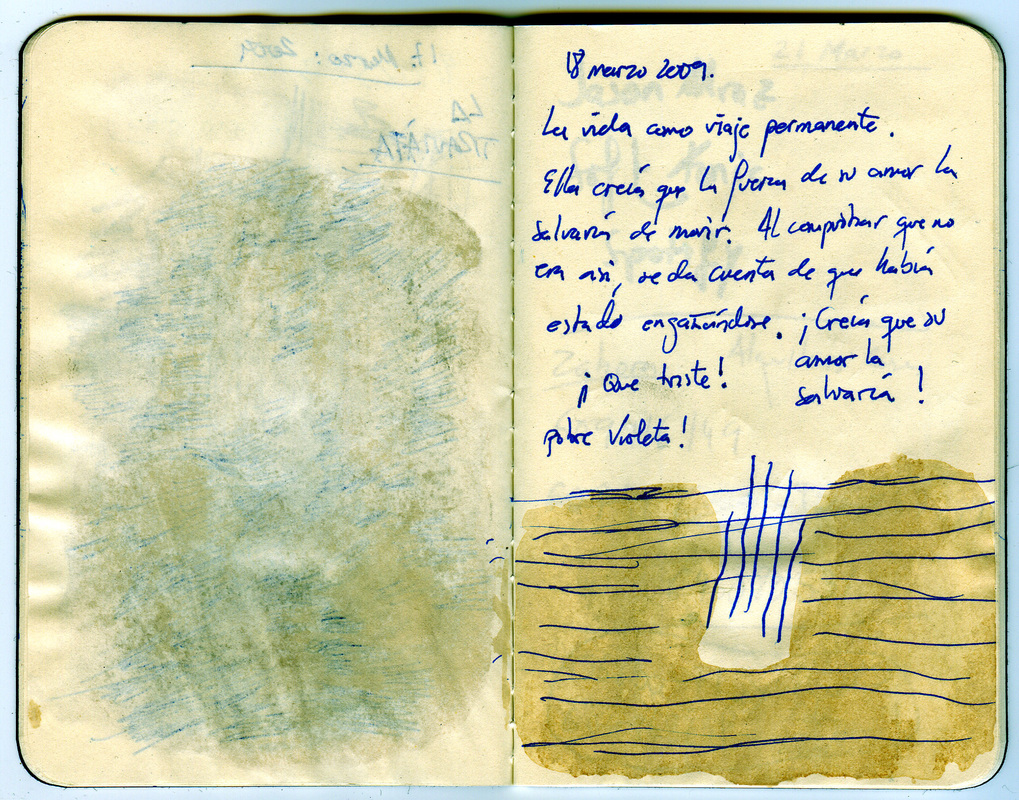 17. Marzo: 2009
LA
TRAVIATA
18 marzo 2009.
La vida como viaje permanente.
Ella creía que la fuerza de su amor la
salvaría de morir. Al comprobar que no
era asi, se da cuenta de que había
estado engañándose. ¡Creía que su
amor la
salvaría!
¡Que triste!
pobre Violeta!
21 Marzo